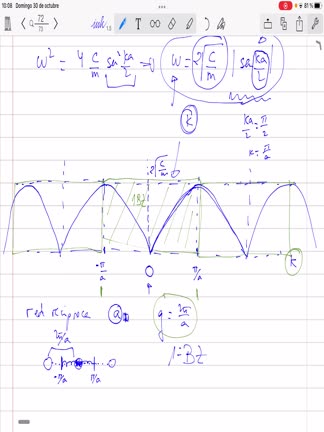 10:08 Domingo 30 de octubre
81 %
72
73
ω² = 4 C/m sen² ka/2 → ω = 2√(C/m) |sen ka/2|
k
ka/2 = π/2
k = π/a
2√(C/m)
1BZ
-π/a 0 π/a
k
red recíproca a g = 2π/a
2π/a
-π/a π/a
1ª BZ